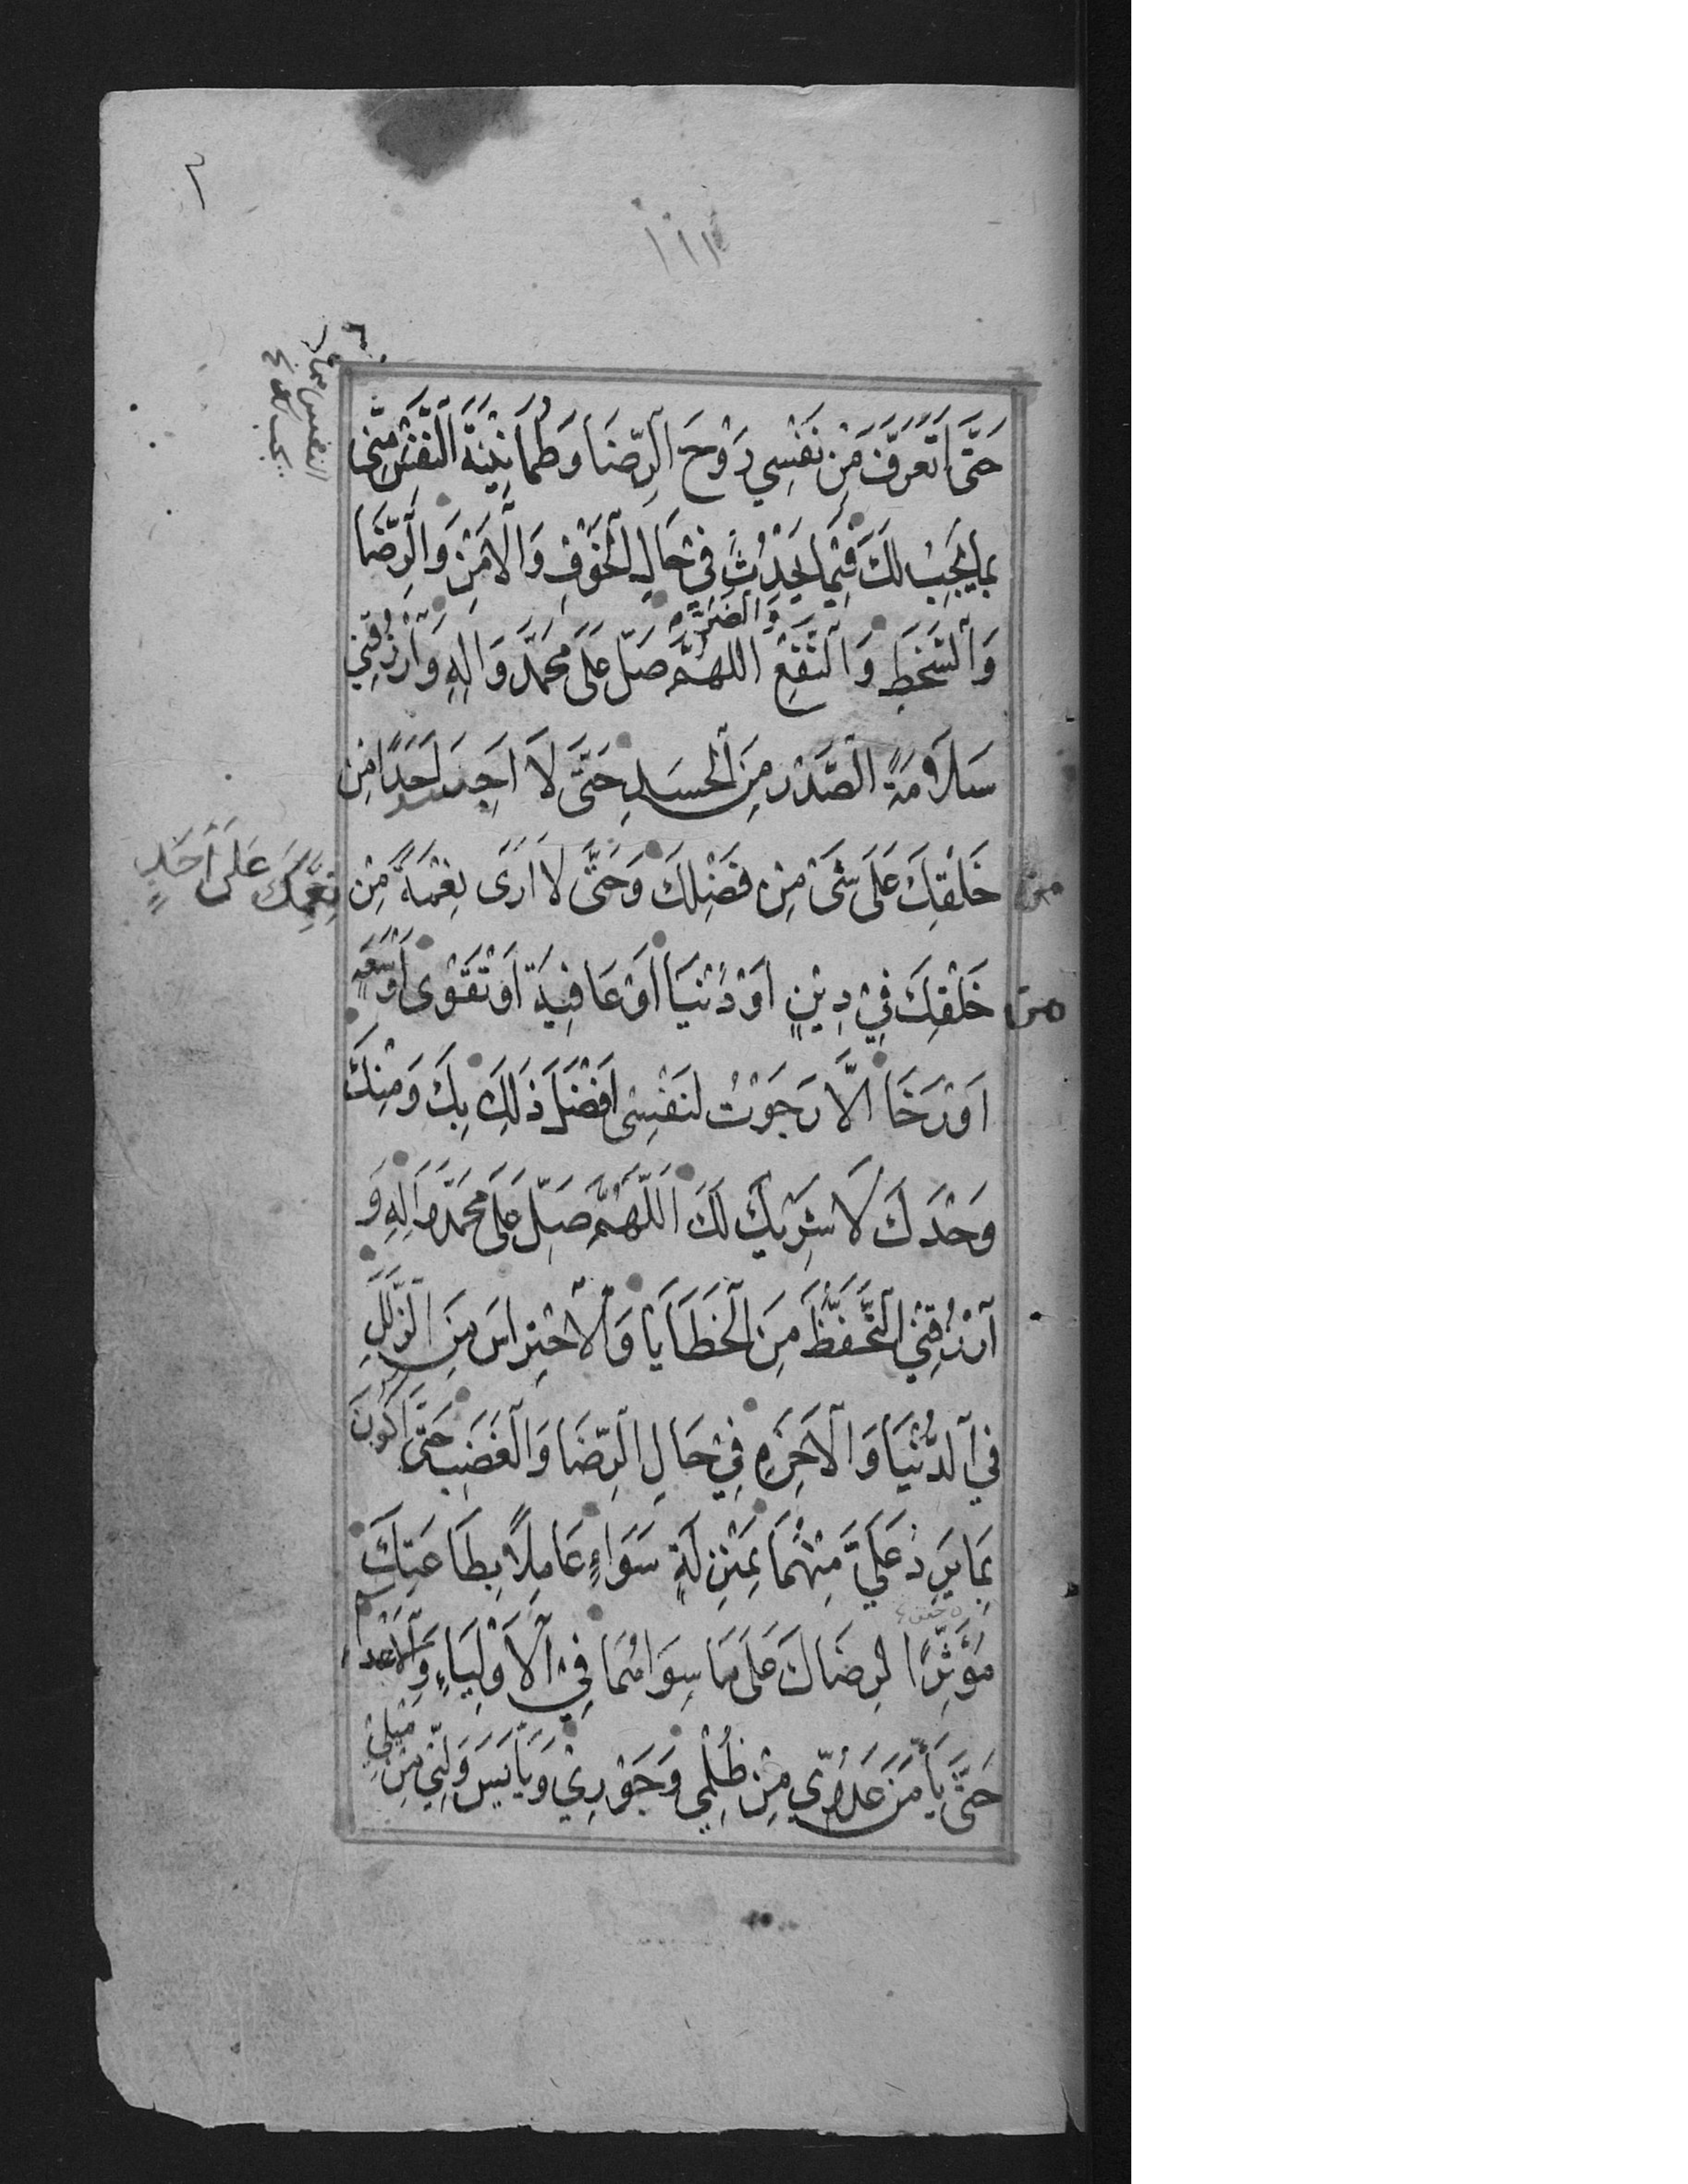 حَتَّى اَتَعَرَّفَ مِنْ نَفْسِي رَوْحَ الرِّضَا وَطُمَانِيْنَةَ النَّفْسِ مِنِّي
بِمَا يَجِبُ لَكَ فِيْمَا يَحْدُثُ فِي حَالِ الْخَوْفِ وَالْاَمْنِ وَالرِّضَا
وَالضَّرِّ
وَالسَّخَطِ وَالنَّفْعِ اللهُمَّ صَلِّ عَلَى مُحَمَّدٍ وَاٰلِهِ وَارْزُقْنِي
سَلَامَةَ الصَّدْرِ مِنَ الْحَسَدِ حَتَّى لَا اَحْسِدَ اَحَدًا مِنْ
خَلْقِكَ عَلَى شَىْ مِنْ فَضْلِكَ وَحَتَّى لَا اَرَى نِعْمَةً مِنْ
نِعَمِكَ عَلَى اَحَدٍ
مِنْ خَلْقِكَ فِي دِيْنٍ اَوْ دُنْيَا اَوْ عَافِيَةٍ اَوْ تَقْوَى اَوْ سَعَةٍ
اَوْ رَخَا اِلَّا رَجَوْتُ لِنَفْسِى اَفْضَلَ ذَلِكَ بِكَ وَمِنْكَ
وَحْدَكَ لَا شَرِيْكَ لَكَ اَللّهُمَّ صَلِّ عَلَى مُحَمَّدٍ وَاٰلِهِ وَ
اَرْزُقْنِي التَّحَفُّظَ مِنَ الْخَطَايَا وَالْاِحْتِرَاسَ مِنَ الزَّلَلِ
فِي الدُّنْيَا وَالْاٰخِرَةِ فِي حَالِ الرِّضَا وَالْغَضَبِ حَتَّى اَكُونَ
بِمَا يَرِدُ عَلَيَّ مِنْهُمَا بِمَنْزِلَةٍ سَوَاءٍ عَامِلًا بِطَاعَتِكَ
مُؤْثِرًا لِرِضَاكَ عَلَى مَا سِوَاهُمَا فِي الْاَوْلِيَاءِ وَالْاَعْدَاءِ
حَتَّى يَأْمَنَ عَدُوِّي مِنْ ظُلْمِي وَجَوْرِيْ وَيَأْيَسَ وَلِيِّي مِنْ مَيْلِيْ